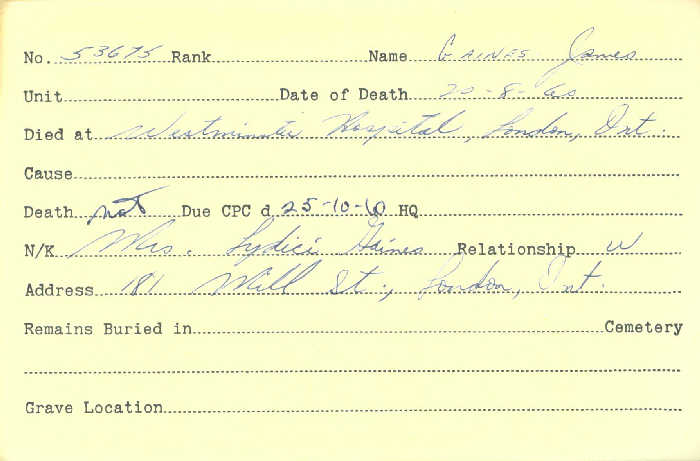 No. 53675 Rank Name GAINES James
Unit Date of Death 20-8-60
Died at Westminster Hospital, London, Ont.
Cause
Death not Due CPC d 25-10-60 HQ
N/K Mrs. Lydia Gaines Relationship W
Address 181 Mill St., London, Ont.
Remains Buried in Cemetery
Grave Location